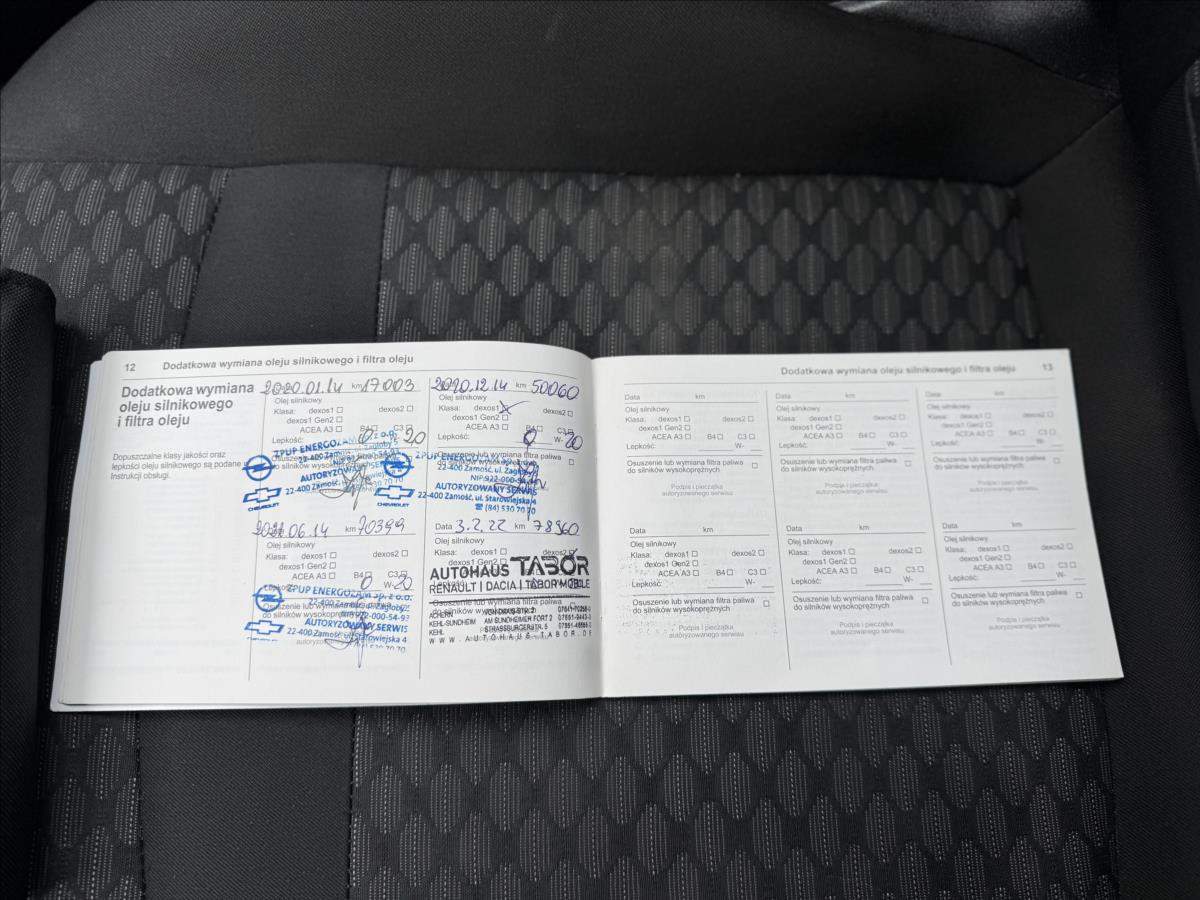 12 Dodatkowa wymiana oleju silnikowego i filtra oleju
Dodatkowa wymiana
oleju silnikowego
i filtra oleju
Dopuszczalne klasy jakości oraz
lepkości oleju silnikowego są podane
Instrukcji obsługi.
2020.01.14 km 17003
Olej silnikowy
Klasa: dexos1 ☐ dexos2 ☐
dexos1 Gen2 ☐
ACEA A3 ☐ B4 ☐ C3 ☐
Lepkość: 0 W- 20
ZPUP ENERGOZAM Sp. z o.o.
AUTORYZOWANY
22-400 Zamość,
CHEVROLET
2020.12.14 km 50060
Olej silnikowy
Klasa: dexos1 ☐ dexos2 ☐
dexos1 Gen2 ☐
ACEA A3 ☐ B4 ☐ C3
Lepkość: 0 W- 20
ZPUP
22-400 Zamość, ul.
NIP 922-000-54-
AUTORYZOWANY SERWIS
22-400 Zamość, ul. Starowiejska 4
☎ (84) 530 70 70
CHEVROLET
06.14 km 70399
Olej silnikowy
Klasa: dexos1 ☐ dexos2 ☐
dexos1 Gen2 ☐
ACEA A3 ☐ B4 ☐ C3 ☐
Lepkość: 0 W- 20
ZPUP ENERGOZAM Sp. z o.o.
22-400 Zamość, ul. Zagłoby
922-000-54-93
AUTORYZOWANY SERWIS
22-400 Zamość, ul. Starowiejska 4
Data 3.2.22 km 78960
Olej silnikowy
Klasa: dexos1 ☐ dexos2
dexos1 Gen2 ☐
AUTOHAUS TABOR
RENAULT | DACIA | TABOR MOBILE
Osuszenie lub wymiana filtra paliwa
ACHERN
KEHL-SUNDHEIM AM SUNDHEIMER FORT 2
KEHL STRASSBURGERSTR. 5
WWW.AUTOHAUS-TABOR.DE
Dodatkowa wymiana oleju silnikowego i filtra oleju 13
Data km
Olej silnikowy
Klasa: dexos1 ☐ dexos2 ☐
dexos1 Gen2 ☐
ACEA A3 ☐ B4 ☐ C3 ☐
Lepkość: W-
Osuszenie lub wymiana filtra paliwa
do silników wysokoprężnych ☐
Podpis i pieczątka
autoryzowanego serwisu
Data km
Olej silnikowy
Klasa: dexos1 ☐ dexos2 ☐
dexos1 Gen2 ☐
ACEA A3 ☐ B4 ☐ C3 ☐
Lepkość: W-
Osuszenie lub wymiana filtra paliwa
do silników wysokoprężnych ☐
Podpis i pieczątka
autoryzowanego serwisu
Data km
Olej silnikowy
Klasa: dexos1 ☐ dexos2 ☐
dexos1 Gen2 ☐
ACEA A3 ☐ B4 ☐ C3 ☐
Lepkość: W-
Osuszenie lub wymiana filtra paliwa
do silników wysokoprężnych ☐
Podpis i pieczątka
autoryzowanego serwisu
Data km
Olej silnikowy
Klasa: dexos1 ☐ dexos2 ☐
dexos1 Gen2 ☐
ACEA A3 ☐ B4 ☐ C3 ☐
Lepkość: W-
Osuszenie lub wymiana filtra paliwa
do silników wysokoprężnych ☐
Podpis i pieczątka
autoryzowanego serwisu
Data km
Olej silnikowy
Klasa: dexos1 ☐ dexos2 ☐
dexos1 Gen2 ☐
ACEA A3 ☐ B4 ☐ C3 ☐
Lepkość: W-
Osuszenie lub wymiana filtra paliwa
do silników wysokoprężnych ☐
Podpis i pieczątka
autoryzowanego serwisu
Data km
Olej silnikowy
Klasa: dexos1 ☐ dexos2 ☐
dexos1 Gen2 ☐
ACEA A3 ☐ B4 ☐ C3 ☐
Lepkość: W-
Osuszenie lub wymiana filtra paliwa
do silników wysokoprężnych ☐
Podpis i pieczątka
autoryzowanego serwisu